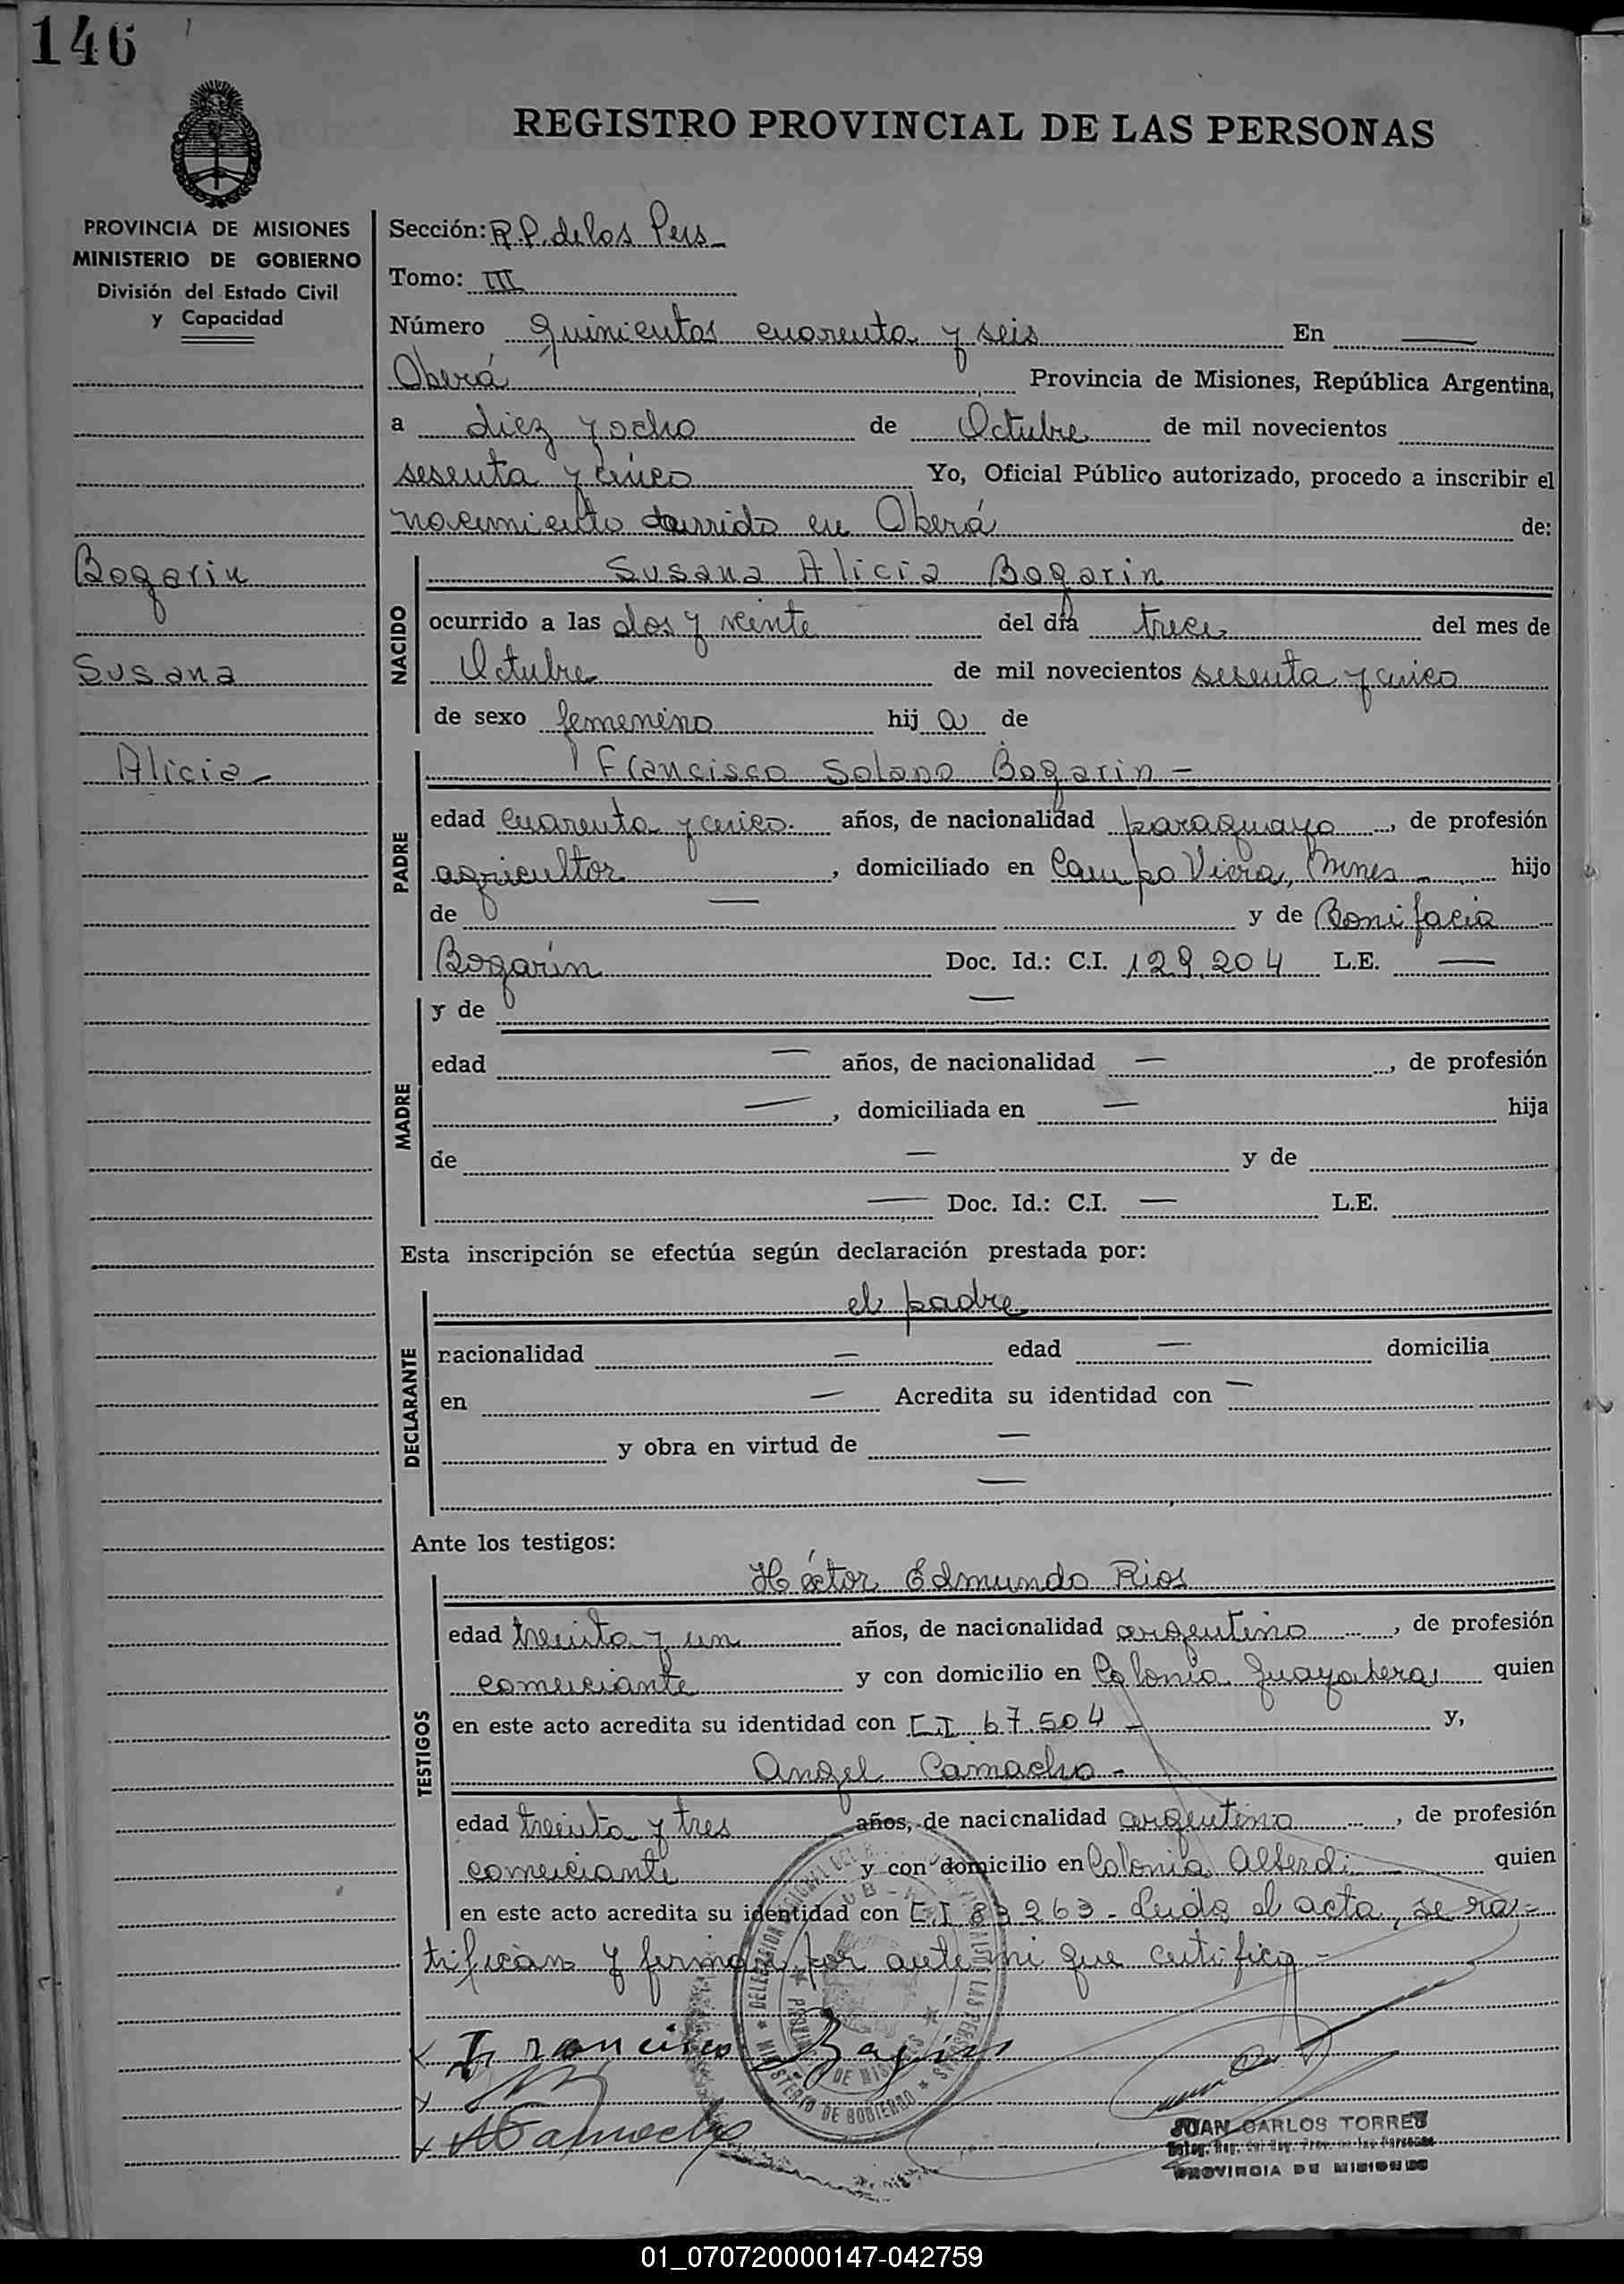 146
REGISTRO PROVINCIAL DE LAS PERSONAS
PROVINCIA DE MISIONES
MINISTERIO DE GOBIERNO
División del Estado Civil
y Capacidad
Bogarin
Susana
Alicia
Sección: R.P. de los Pers
Tomo: III
Número quinientos cuarenta y seis En —
Oberá Provincia de Misiones, República Argentina,
a diez y ocho de Octubre de mil novecientos
sesenta y cinco Yo, Oficial Público autorizado, procedo a inscribir el
nacimiento ocurrido en Oberá de:
NACIDO
Susana Alicia Bogarin
ocurrido a las dos y veinte del día trece del mes de
Octubre de mil novecientos sesenta y cinco
de sexo femenino hij a de
PADRE
Francisco Solano Bogarin -
edad cuarenta y cinco años, de nacionalidad paraguayo, de profesión
agricultor, domiciliado en Campo Viera, Mnes hijo
de — y de Bonifacia
Bogarín Doc. Id.: C.I. 129.204 L.E. —
MADRE
y de —
edad — años, de nacionalidad —, de profesión
—, domiciliada en — hija
de — y de
— Doc. Id.: C.I. — L.E.
Esta inscripción se efectúa según declaración prestada por:
DECLARANTE
el padre
nacionalidad — edad — domicilia
en — Acredita su identidad con —
y obra en virtud de —
—
Ante los testigos:
TESTIGOS
Héctor Edmundo Rios
edad treinta y un años, de nacionalidad argentino, de profesión
comerciante y con domicilio en Colonia Guayabera, quien
en este acto acredita su identidad con C.I. 67.504 - y,
Angel Camacho -
edad treinta y tres años, de nacionalidad argentino, de profesión
comerciante y con domicilio en Colonia Alberdi quien
en este acto acredita su identidad con C.I. 83263 - Leida el acta, se ra-
tifican y firman por ante mi que certifico -
Francisco Bogarin
ACamacho
MINISTERIO DE GOBIERNO
JUAN CARLOS TORRES
PROVINCIA DE MISIONES
01_070720000147-042759